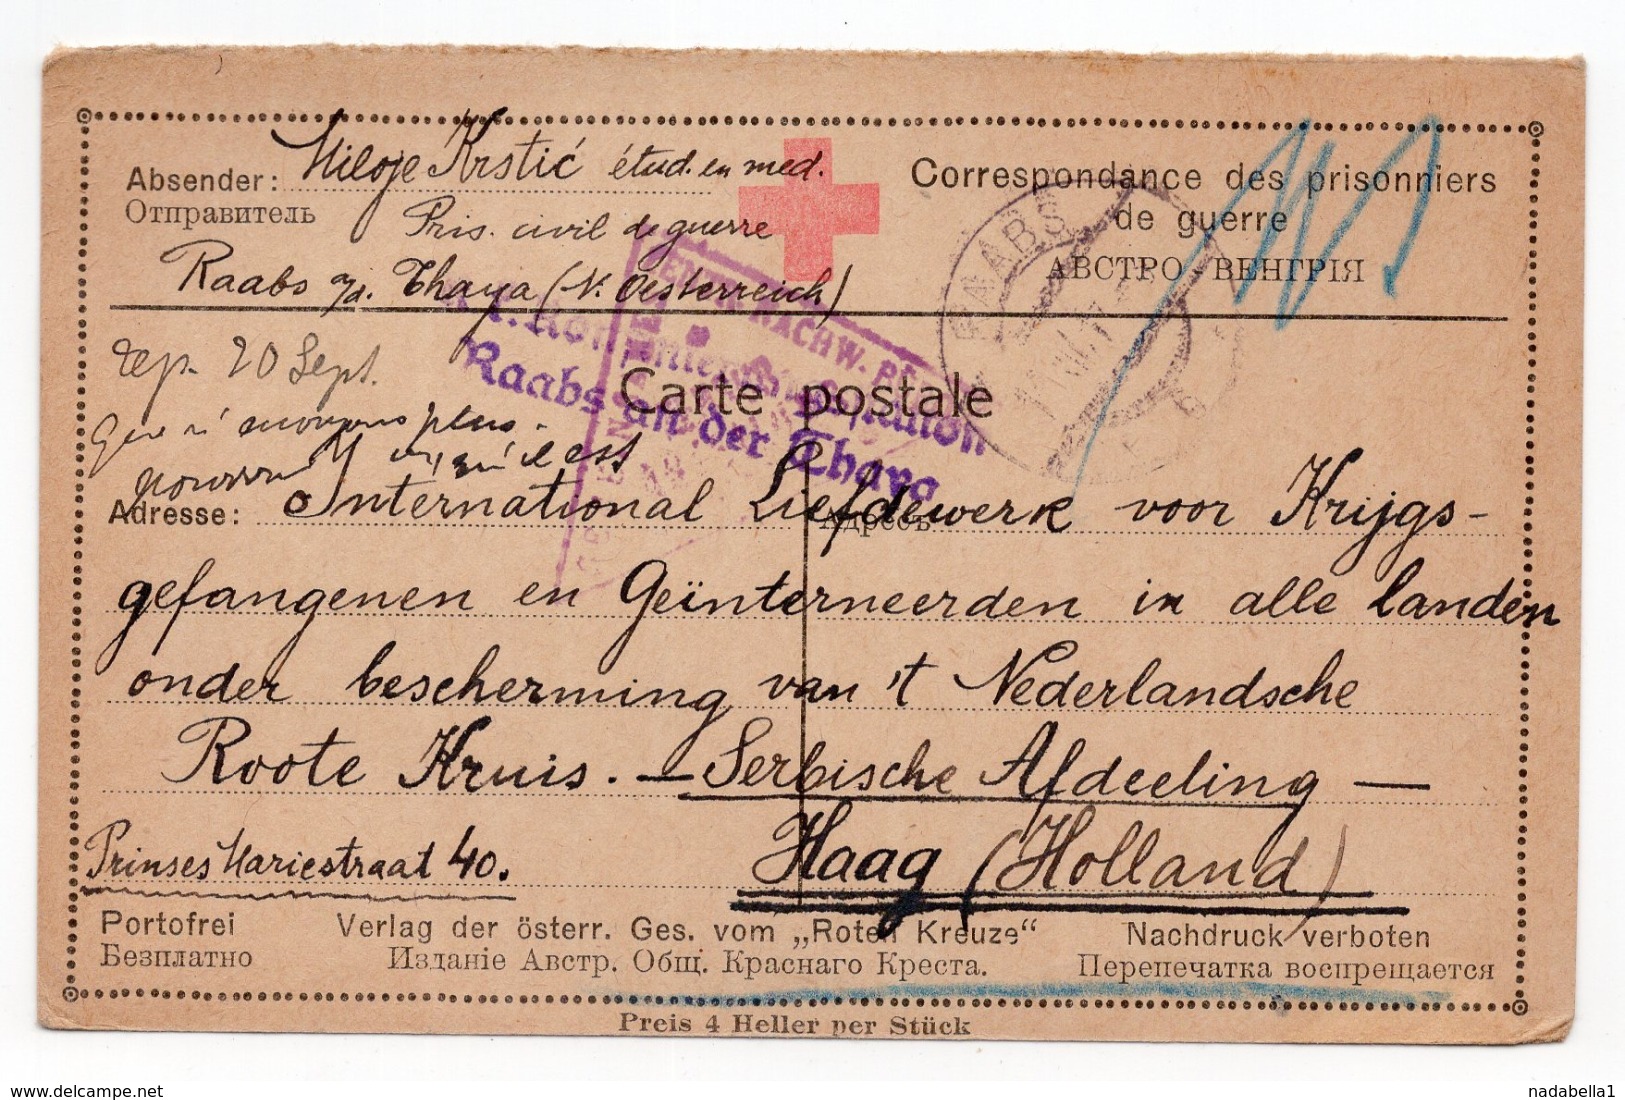 Absender: Miloje Krstić étud. en med.
Отправитель
Pris. civil de guerre
Raabs a/d. Thaya (N. Oesterreich)
Correspondance des prisonniers
de guerre
АВСТРО-ВЕНГРІЯ
RAABS
rep. 20 Sept.
plus
est
Carte postale
Raabs an der Thaya
Adresse: International Liefdewerk voor Krijgs-
Адресъ:
gefangenen en Geïnterneerden in alle landen
onder bescherming van 't Nederlandsche
Roote Kruis. — Serbische Afdeeling —
Prinses Mariestraat 40.
Haag (Holland)
Portofrei Verlag der österr. Ges. vom „Roten Kreuze“ Nachdruck verboten
Безплатно Изданіе Австр. Общ. Краснаго Креста. Перепечатка воспрещается
Preis 4 Heller per Stück
www.delcampe.net
nadabella1